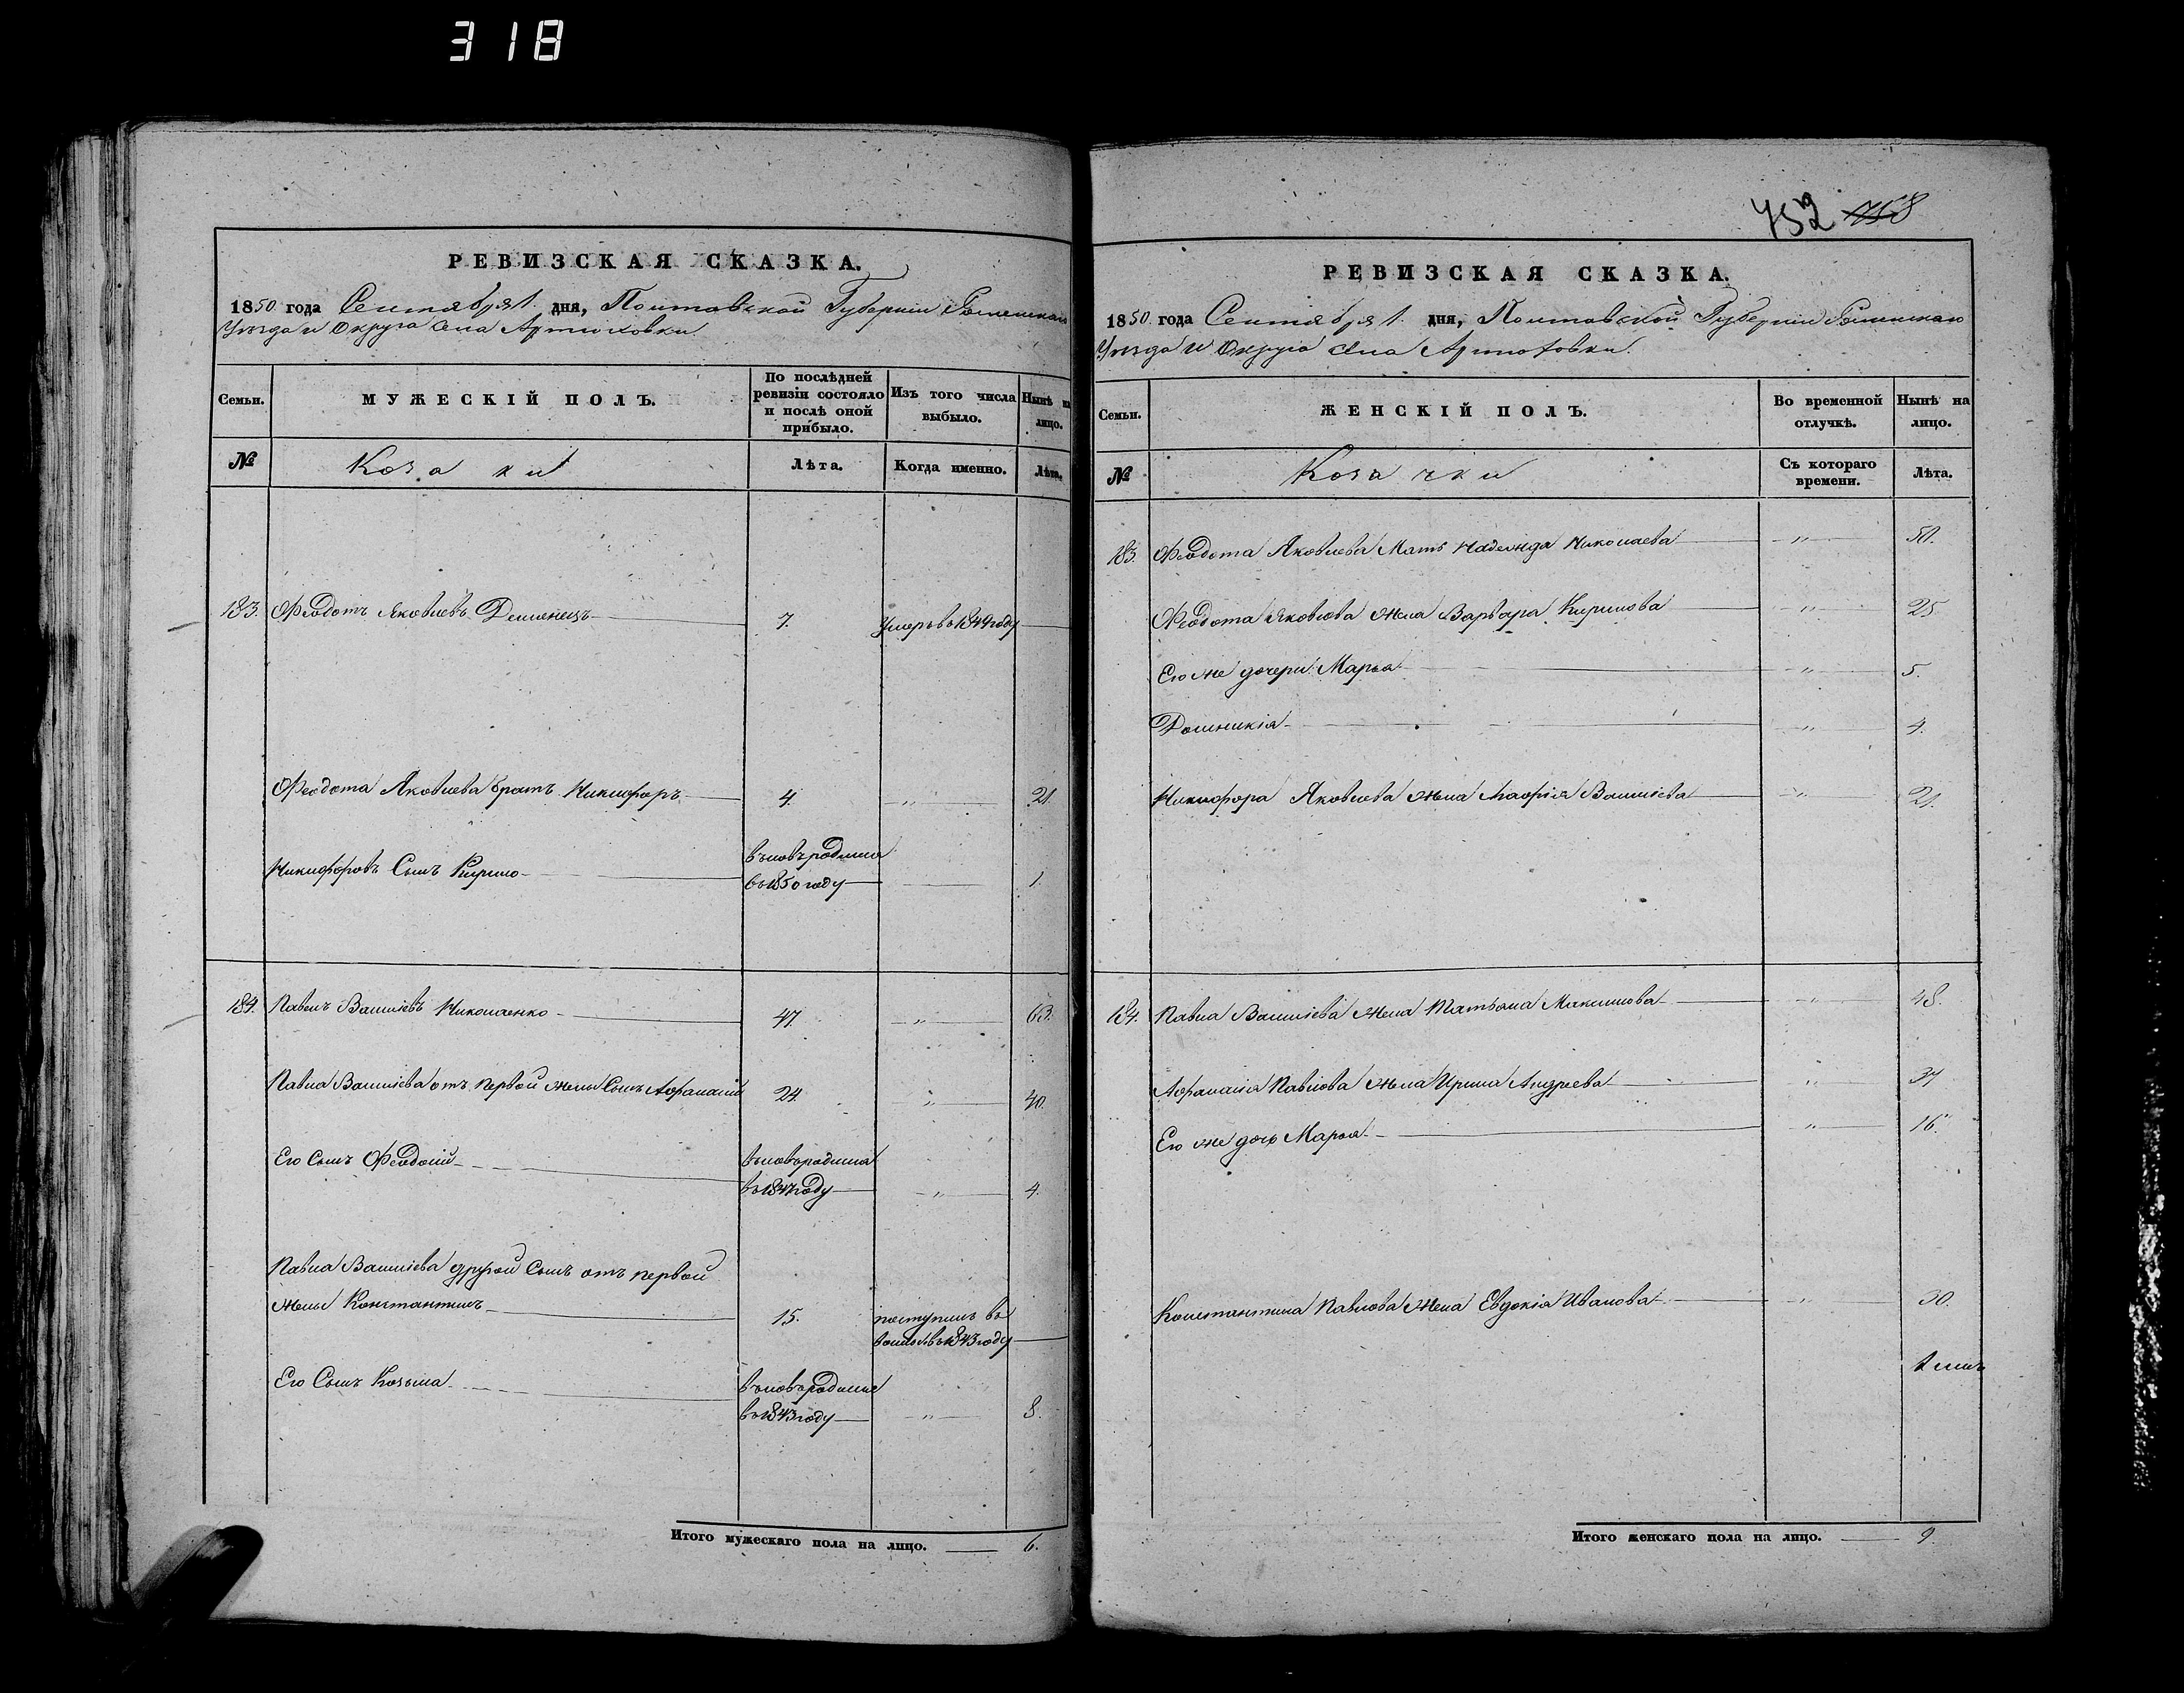 318
РЕВИЗСКАЯ СКАЗКА.
1850 года Сентября 1. дня, Полтавской Губерніи Роменскаго
Уѣзда и Округа села Артюховки.
Семьи.
МУЖЕСКІЙ ПОЛЪ.
По послѣдней ревизіи состояло и послѣ оной прибыло.
Изъ того числа выбыло.
Нынѣ на лицо.
№
Козаки
Лѣта.
Когда именно.
Лѣта.
183. Феодотъ Яковлевъ 7. Умеръ въ 1849 году
Феодота Яковлева братъ Никифоръ 4. „ 21.
Никифоровъ Сынъ Кирило
вновь родился
въ 1850 году 1.
184. Павелъ Василіевъ Николаенко 47. „ 63.
Павла Василіева отъ первой жены Сынъ Афанасій 24. „ 40.
Его Сынъ Феодосій
вновь родился
въ 1847 году „ 4.
Павла Василіева другой Сынъ отъ первой
жены Константинъ 15. поступилъ въ
въ 1843 году
Его Сынъ Козьма
вновь родился
въ 1843 году „ 8.
Итого мужескаго пола на лицо. 6.
752 758
РЕВИЗСКАЯ СКАЗКА.
1850 года Сентября 1. дня, Полтавской Губерніи Роменскаго
Уѣзда и Округа села Артюховки.
Семьи.
ЖЕНСКІЙ ПОЛЪ.
Во временной отлучкѣ.
Нынѣ на лицо.
№
Козачки
Съ котораго времени.
Лѣта.
183. Феодота Яковлева Мать Надежда Николаева „ 50.
Феодота Яковлева жена Варвара Кирилова „ 25
Его же дочери: Марья „ 5.
Домникія „ 4.
Никифора Яковлева жена Мафрія Василіева „ 21.
184. Павла Василіева жена Татьяна Максимова „ 48.
Афанасія Павлова жена Ирина Андреева „ 37
Его же дочь Марья „ 16.
Константина Павлова жена Евдокія Иванова „ 30.
Итого женскаго пола на лицо. 9.